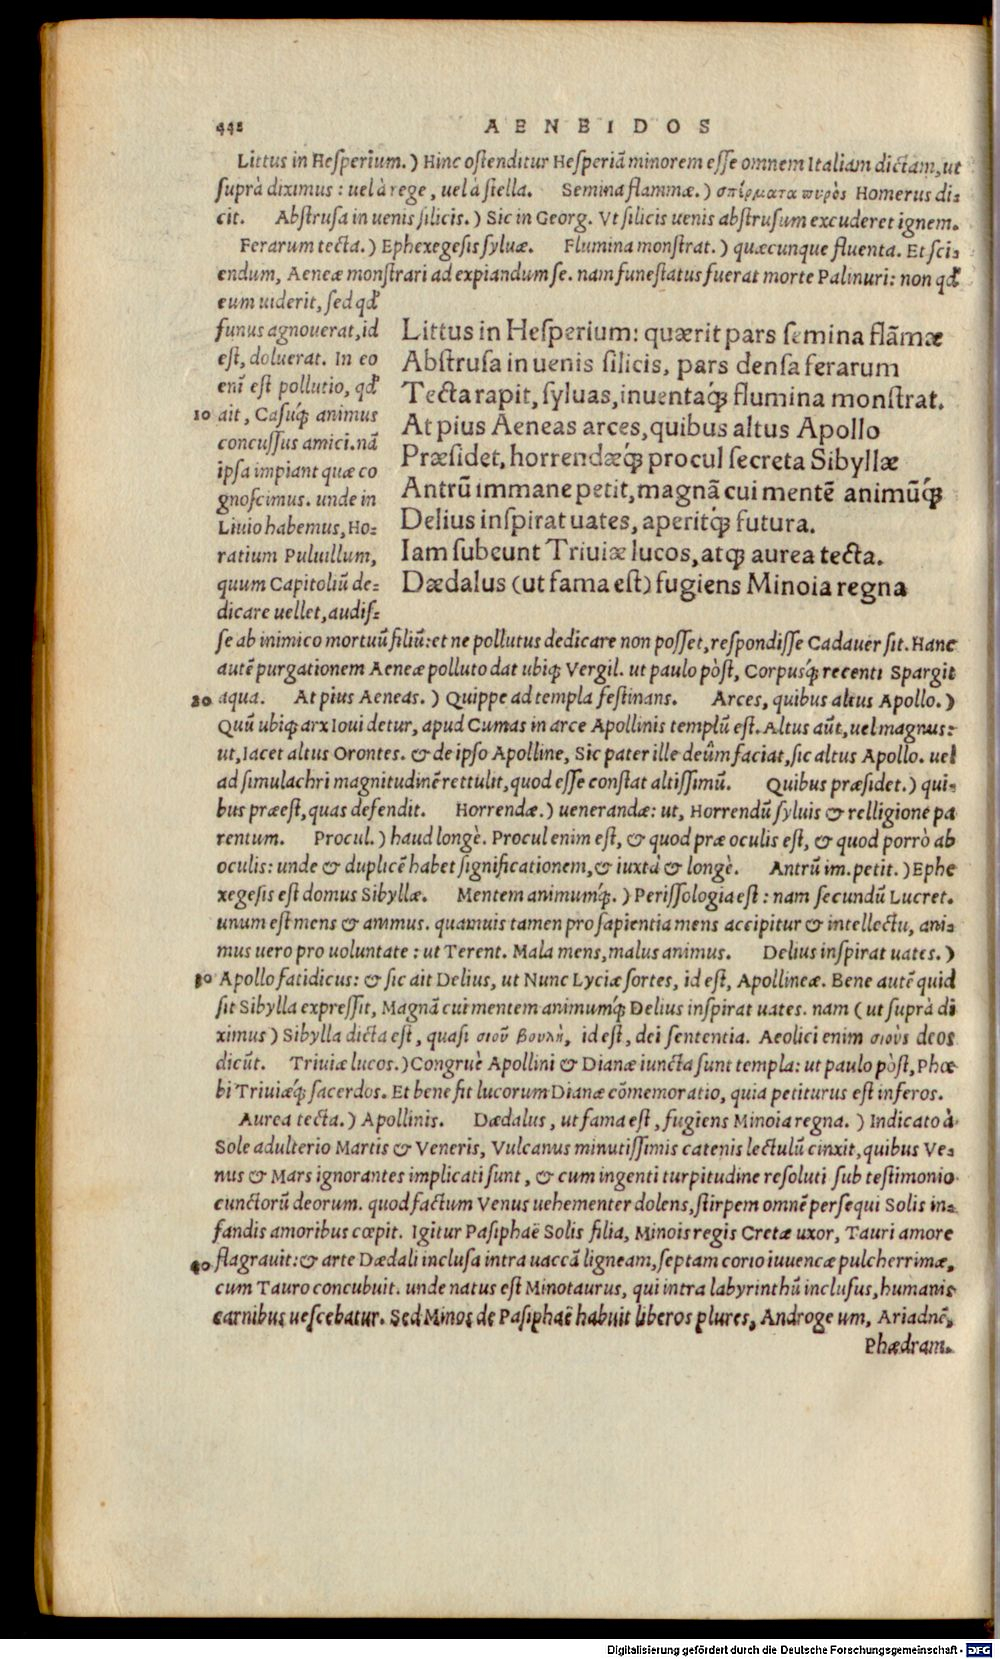 448
AENEIDOS
Littus in Hesperium.) Hinc ostenditur Hesperiā minorem esse omnem Italiam dictam, ut
suprà diximus: uel à rege, uel à stella. Semina flammæ.) σπέρματα πυρὸς Homerus di=
cit. Abstrusa in uenis silicis.) Sic in Georg. Vt silicis uenis abstrusum excuderet ignem.
Ferarum tecta.) Ephexegesis syluæ. Flumina monstrat.) quæcunque fluenta. Et sci=
endum, Aeneæ monstrari ad expiandum se. nam funestatus fuerat morte Palinuri: non qđ
eum uiderit, sed qđ
funus agnouerat, id
est, doluerat. In eo
enī est pollutio, qđ
10 ait, Casúq; animus
concussus amici. nā
ipsa impiant quæ co
gnoscimus. unde in
Liuio habemus, Ho=
ratium Puluillum,
quum Capitoliū de=
dicare uellet, audis=
Littus in Hesperium: quærit pars semina flāmæ
Abstrusa in uenis silicis, pars densa ferarum
Tecta rapit, syluas, inuentaq́; flumina monstrat.
At pius Aeneas arces, quibus altus Apollo
Præsidet, horrendæq́; procul secreta Sibyllæ
Antrū immane petit, magnā cui mentē animūq́;
Delius inspirat uates, aperitq́; futura.
Iam subeunt Triuiæ lucos, atq; aurea tecta.
Dædalus (ut fama est) fugiens Minoia regna
se ab inimico mortuū filiū: et ne pollutus dedicare non posset, respondisse Cadauer sit. Hanc
autē purgationem Aeneæ polluto dat ubiq; Vergil. ut paulo pòst, Corpusq́; recenti Spargit
20 aqua. At pius Aeneas.) Quippe ad templa festinans. Arces, quibus altus Apollo.)
Quū ubiq; arx Ioui detur, apud Cumas in arce Apollinis templū est. Altus aūt, uel magnus:
ut, Iacet altus Orontes. & de ipso Apolline, Sic pater ille deûm faciat, sic altus Apollo. uel
ad simulachri magnitudinē rettulit, quod esse constat altissimū. Quibus præsidet.) qui=
bus præest, quas defendit. Horrendæ.) uenerandæ: ut, Horrendū syluis & relligione pa
rentum. Procul.) haud longè. Procul enim est, & quod præ oculis est, & quod porrò ab
oculis: unde & duplicē habet significationem, & iuxtà & longè. Antrū im. petit.) Ephe
xegesis est domus Sibyllæ. Mentem animumq́;.) Perissologia est: nam secundū Lucret.
unum est mens & animus. quamuis tamen pro sapientia mens accipitur & intellectu, ani=
mus uero pro uoluntate: ut Terent. Mala mens, malus animus. Delius inspirat uates.)
30 Apollo fatidicus: & sic ait Delius, ut Nunc Lyciæ sortes, id est, Apollineæ. Bene autē quid
sit Sibylla expressit, Magnā cui mentem animumq́; Delius inspirat uates. nam (ut suprà di
ximus) Sibylla dicta est, quasi σιοῦ βουλὴ, id est, dei sententia. Aeolici enim σιοὺς deos
dicūt. Triuiæ lucos.) Congruè Apollini & Dianæ iuncta sunt templa: ut paulo pòst, Phœ=
bi Triuiæq́; sacerdos. Et bene fit lucorum Dianæ cōmemoratio, quia petiturus est inferos.
Aurea tecta.) Apollinis. Dædalus, ut fama est, fugiens Minoia regna.) Indicato à
Sole adulterio Martis & Veneris, Vulcanus minutissimis catenis lectulū cinxit, quibus Ve=
nus & Mars ignorantes implicati sunt, & cum ingenti turpitudine resoluti sub testimonio
cunctorū deorum. quod factum Venus uehementer dolens, stirpem omnē persequi Solis in=
fandis amoribus cœpit. Igitur Pasiphaë Solis filia, Minois regis Cretæ uxor, Tauri amore
40 flagrauit: & arte Dædali inclusa intra uaccā ligneam, septam corio iuuencæ pulcherrimæ,
cum Tauro concubuit. unde natus est Minotaurus, qui intra labyrinthū inclusus, humanis
carnibus uescebatur. Sed Minos de Pasiphaë habuit liberos plures, Androgeum, Ariadnē,
Phædram.
Digitalisierung gefördert durch die Deutsche Forschungsgemeinschaft - DFG